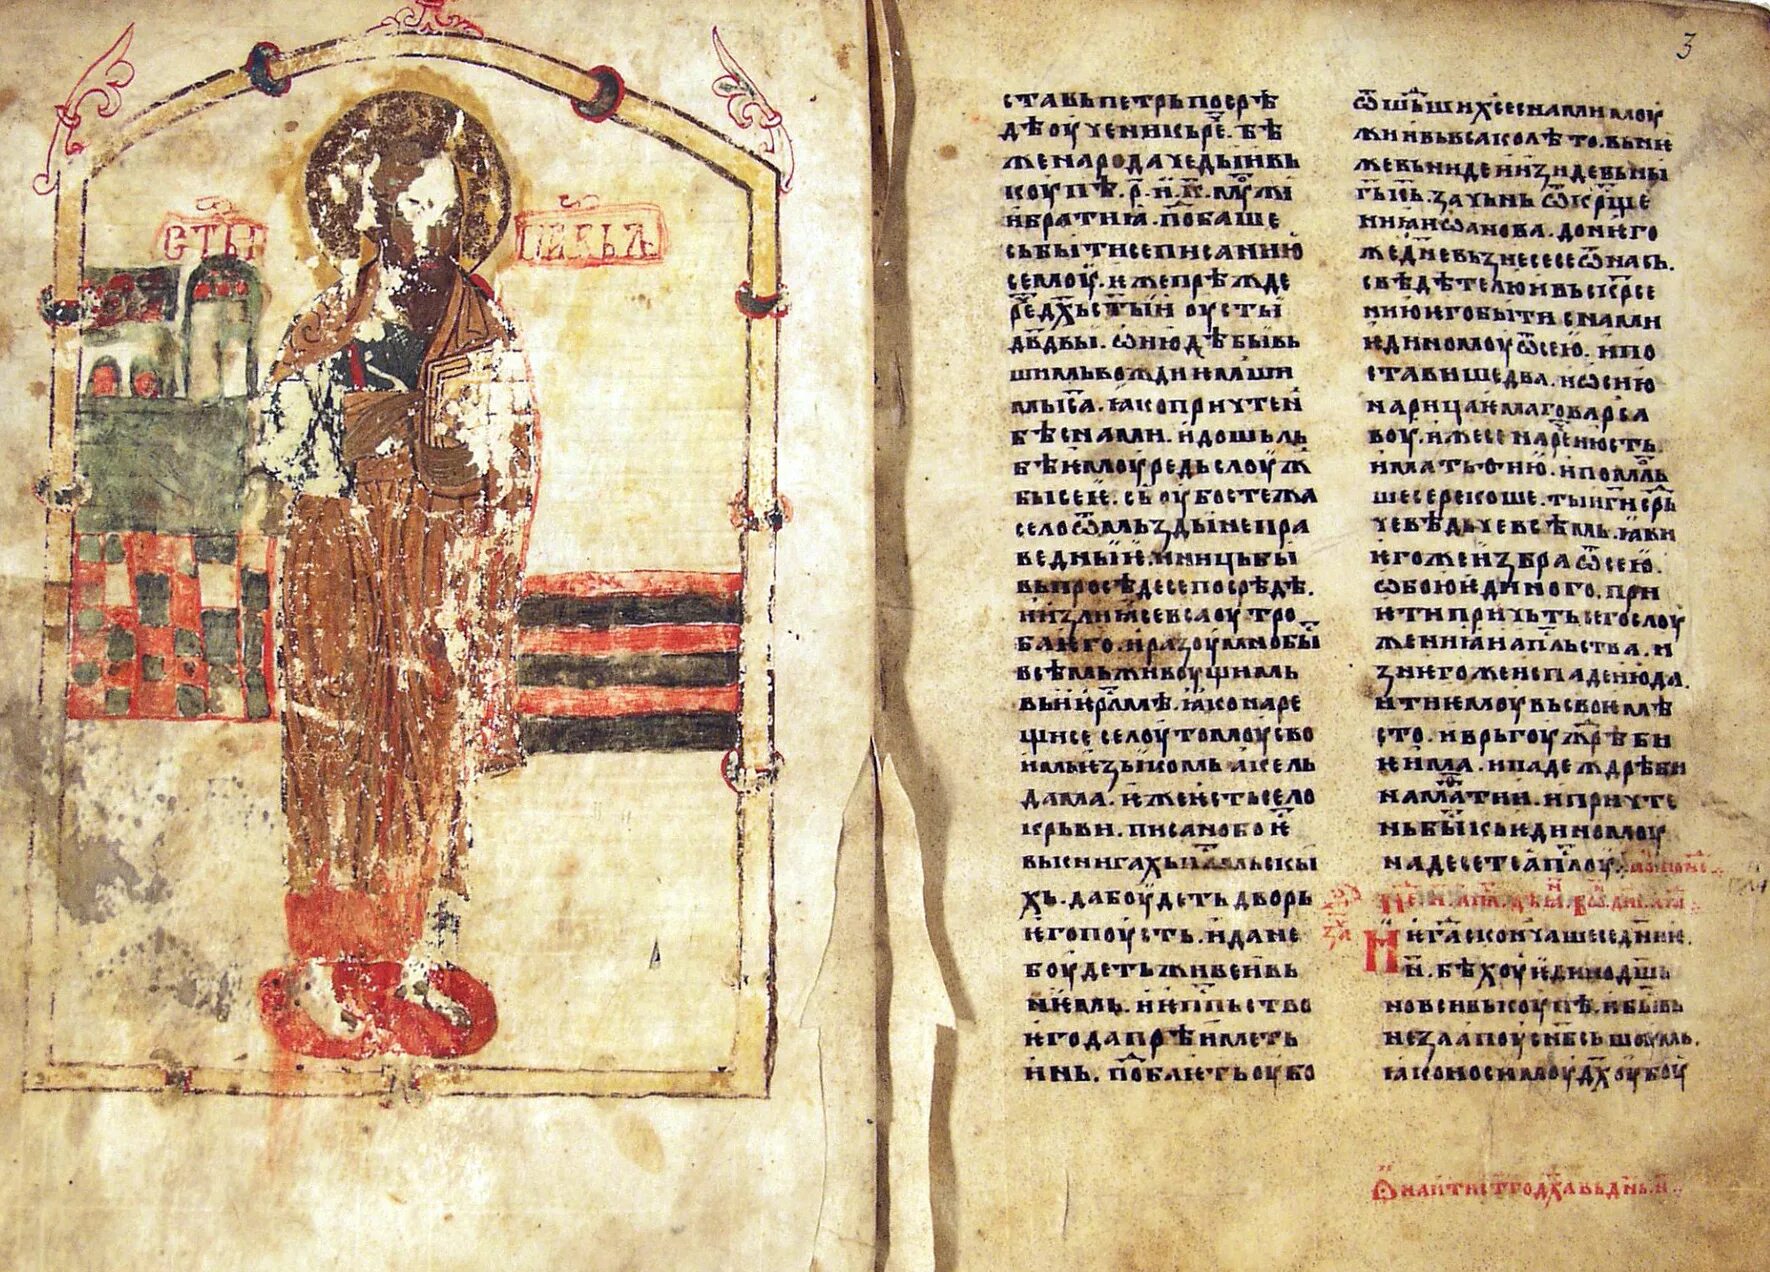 СТꙐ
ПАВЬЛ
3
ставь петрь посрѣ
дѣ оученикь рⷱ҇е. бѣ
же народа чедьи вь
коупѣ. р҃. и. к҃. моужі
и братиꙗ. подобаше
сь бытисе писанию
семоу. иже прѣжде
рⷱ҇е дх҃ь ст҃ыи оусты
дв҃двы. ѡ июдѣ бывь
шимь вожди имьши
мь іс҃а. ꙗко причтень
бѣ с нами. и дошьль
бѣ ѥмоу редь слоуж
бы сеѥ. сь оубо стежа
село ѿ мьзды непра
ведныѥ. и ниць бы
вь просѣдесе посрѣдѣ.
и излиꙗсе вса оутро
ба ѥго. и разоумно бы
всѣмь живоущимь
вь иѥрⷭ҇лмѣ. ꙗко наре
щисе селоу томоу сво
имь ѥзыкомь акель
дама. ѥже ѥсть село
крьви. писано бо ѥⷭ҇
вь книгахь ѱⷧ҇альскы
хь. да боудеть дворь
ѥго поусть. и да не
боудеть живеи вь
нѥмь. и ѥпⷭ҇пьство
ѥго да прѣиметь
инь. подоблѥть оубо
ѿ шьⷣших се с нами моу
жи вь всако лѣто. вь нѥ
же вьниде и изиде вь ны
г҃ь іс҃ь. зачьнь ѿ крⷭ҇ще
ниꙗ иѡанова. до нѥго
же дн҃е вьзнесесе ѿ нась.
свѣдѣтелю и вьскрⷭ҇се
нию ѥго быти с нами
ѥдиномоу ѿ сею. и по
ставише два. иѡсию
нарицаѥмаго варса
воу. иже се нареⷱ҇ ѥюсть.
и матьѳию. и помль
ше се рекоше. ты г҃и срⷣ
чевѣдьче всѣмь. ꙗви
ѥгоже избра ѿ сею.
ѡбою ѥдиного. при
ѥти причть сего слоу
жениꙗ и апⷭ҇льства. и
з нѥгоже испаде июда.
ити ѥмоу вь своѥ мѣ
сто. и врьгоу жрѣби
ѥ има. и паде ждрѣби
на маⷮтии. и причте
нь быⷭ҇ кь ѥдиномоу
на десете апⷭ҇лоу.
Ѥгⷣа скончаше се дниѥ.
н҃. бѣхоу ѥдинодш҃ь
но вси вькоупѣ. и быⷭ҇ вь
незапоу сь нб҃сь шоумь.
ꙗко носимоу дх҃оу боу